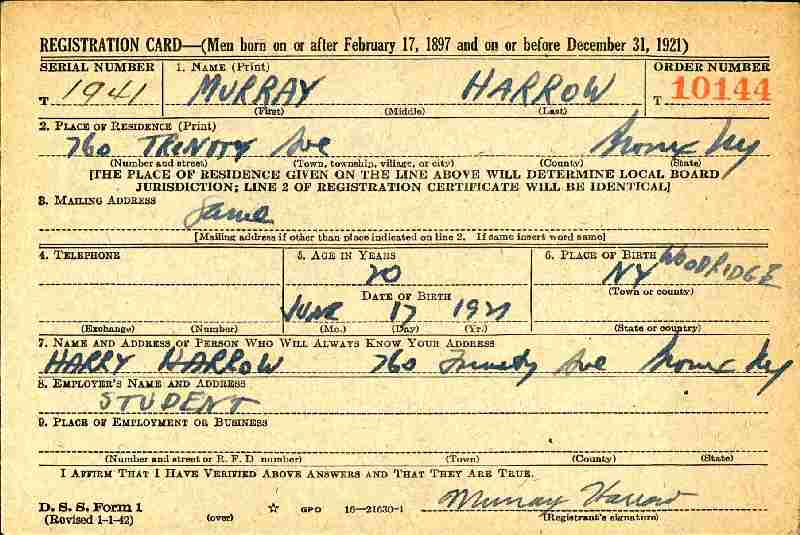 REGISTRATION CARD—(Men born on or after February 17, 1897 and on or before December 31, 1921)
SERIAL NUMBER 1. NAME (Print) ORDER NUMBER
T 1941 MURRAY HARROW T 10144
(First) (Middle) (Last)
2. PLACE OF RESIDENCE (Print)
760 TRINITY Ave Bronx Ny
(Number and street) (Town, township, village, or city) (County) (State)
[THE PLACE OF RESIDENCE GIVEN ON THE LINE ABOVE WILL DETERMINE LOCAL BOARD
JURISDICTION; LINE 2 OF REGISTRATION CERTIFICATE WILL BE IDENTICAL]
3. MAILING ADDRESS
Same
[Mailing address if other than place indicated on line 2. If same insert word same]
4. TELEPHONE 5. AGE IN YEARS 6. PLACE OF BIRTH
20 NY WOODRIDGE
DATE OF BIRTH (Town or county)
JUNE 17 1921
(Exchange) (Number) (Mo.) (Day) (Yr.) (State or country)
7. NAME AND ADDRESS OF PERSON WHO WILL ALWAYS KNOW YOUR ADDRESS
HARRY HARROW 760 Trinity Ave Bronx Ny
8. EMPLOYER'S NAME AND ADDRESS
STUDENT
9. PLACE OF EMPLOYMENT OR BUSINESS
(Number and street or R. F. D. number) (Town) (County) (State)
I AFFIRM THAT I HAVE VERIFIED ABOVE ANSWERS AND THAT THEY ARE TRUE.
Murray Harrow
D. S. S. Form 1
(Revised 1-1-42) (over) ☆ GPO 16—21630-1 (Registrant's signature)